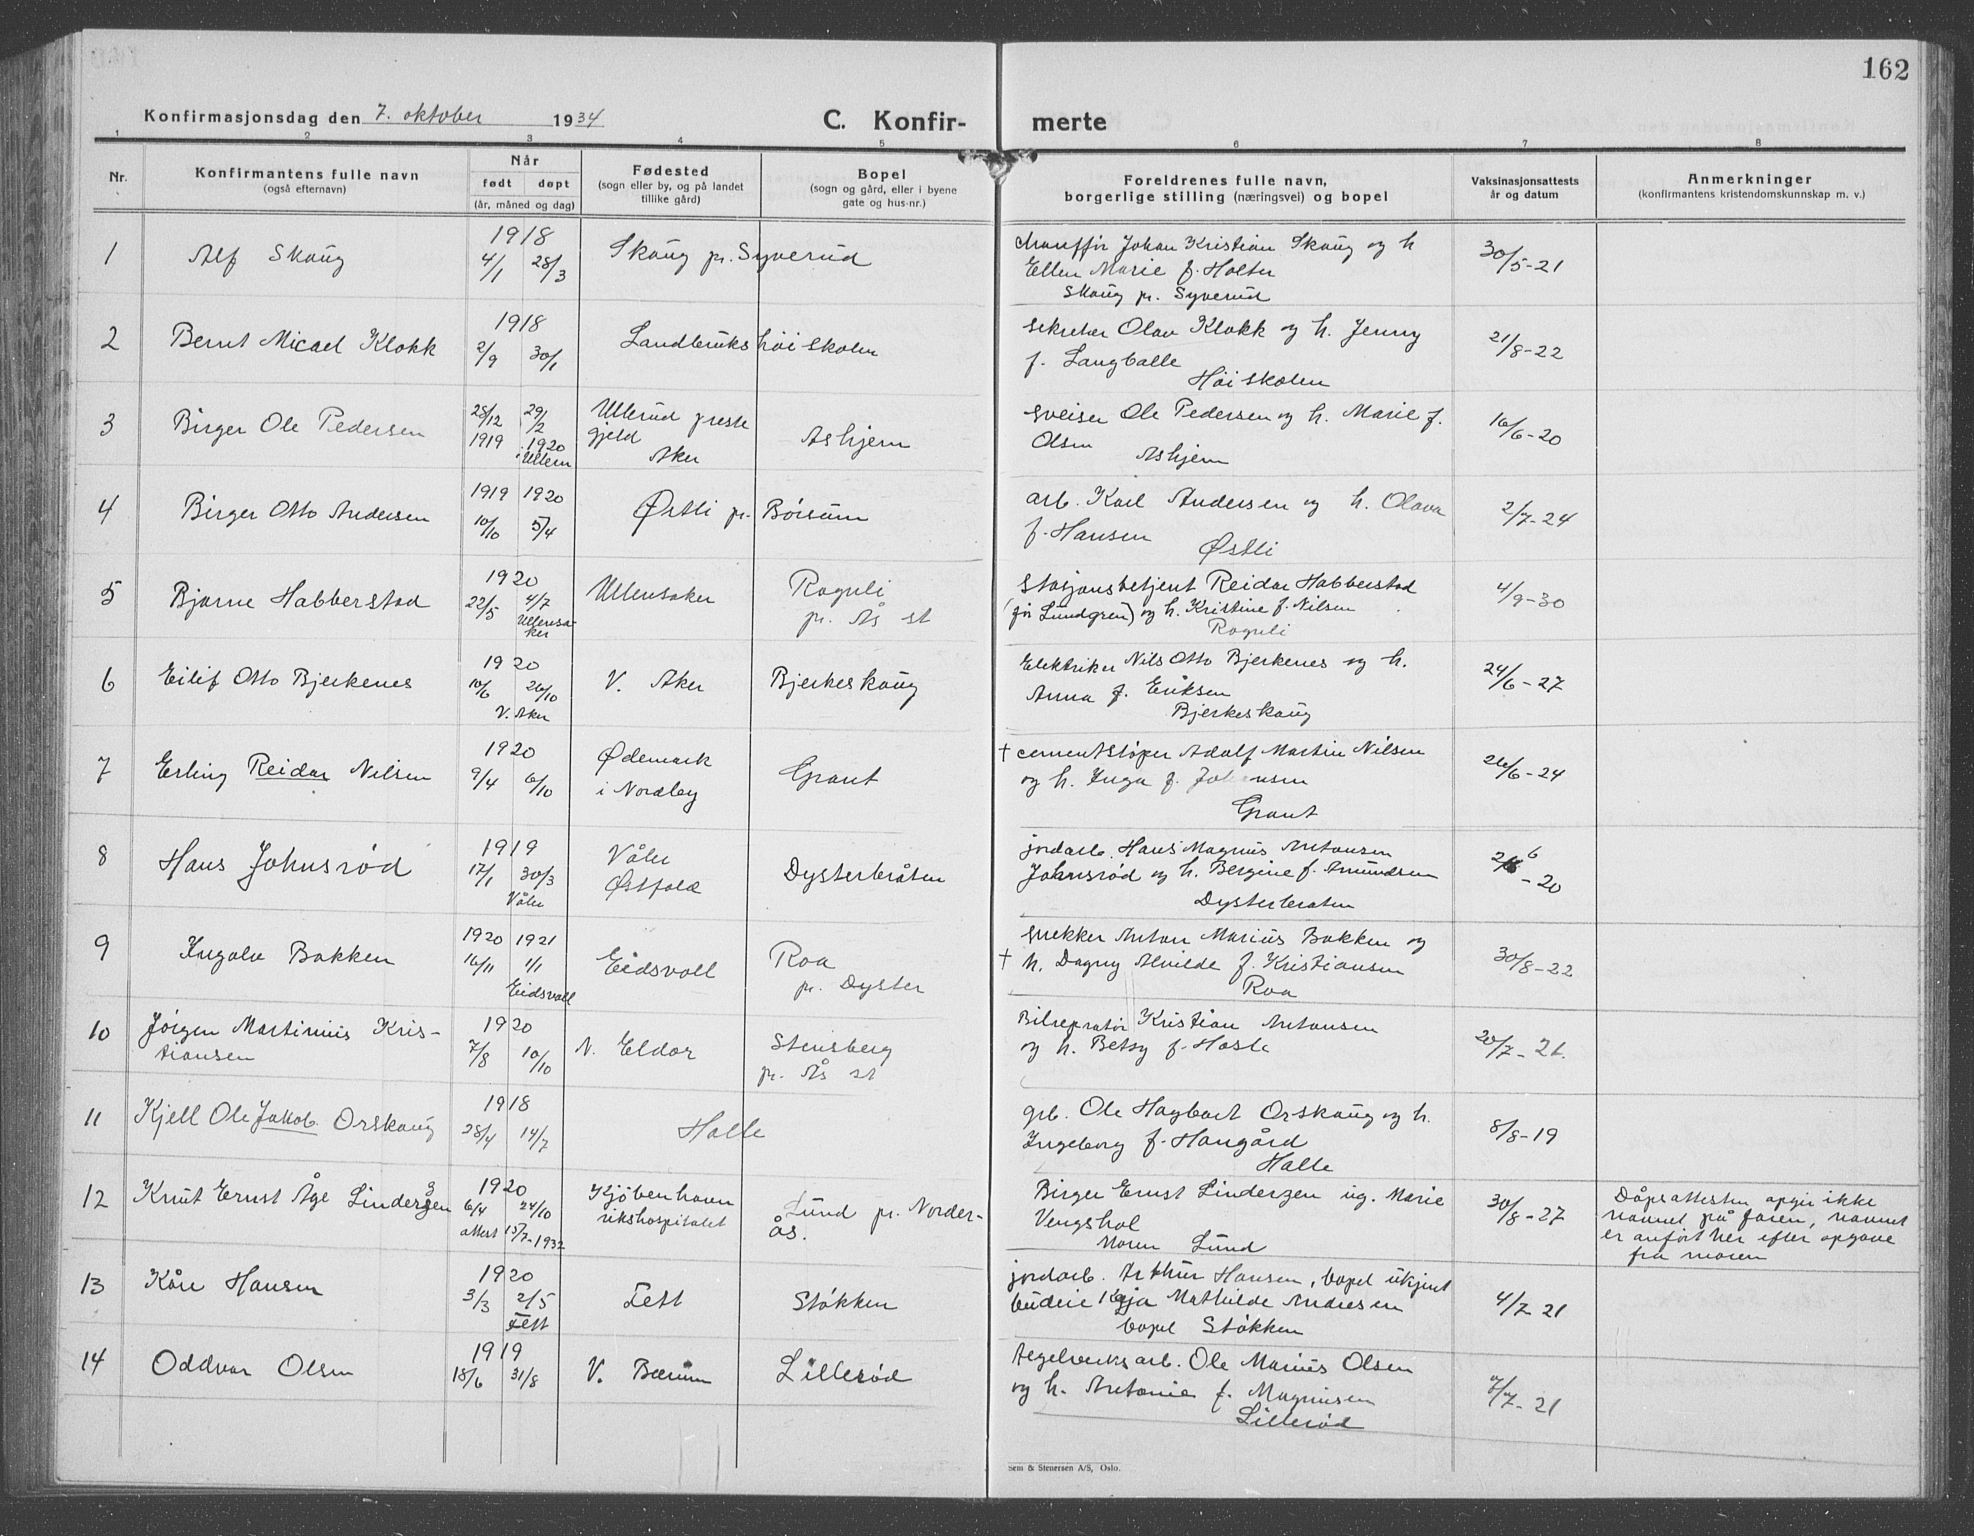 162
Konfirmasjonsdag den 7. oktober 1934
C. Konfir- merte
1 2 3 4 5 6 7 8
Nr.
Konfirmantens fulle navn
(også efternavn)
Når
født døpt
(år, måned og dag)
Fødested
(sogn eller by, og på landet
tillike gård)
Bopel
(sogn og gård, eller i byene
gate og hus-nr.)
Foreldrenes fulle navn,
borgerlige stilling (næringsvei) og bopel
Vaksinasjonsattests
år og datum
Anmerkninger
(konfirmantens kristendomskunnskap m. v.)
1 Alf Skaug
1918
4/1 28/3
Skaug pr. Syverud
Johan Kristian Skaug og h
Ellen Marie f. Holter
Skaug pr. Syverud
30/5-21
2 Bernt Micael Klokk
1918
2/9 30/1
Landbrukshöiskolen
sekretær Olav Klokk og h. Jenny
f. Langballe
Höiskolen
21/8-22
3 Birger Ole Pedersen
28/12 29/2
1919 1920
i Ullern
Ullerud preste
gjeld
Aker
Askjem
sveiser Ole Pedersen og h. Marie f.
Olsen
Askjem
16/6-20
4 Birger Otto Andersen
1919 1920
10/10 5/4
Østli pr. Börsum
arb. Karl Andersen og h. Olava
f. Hansen
Østli
2/7-24
5 Bjarne Habberstad
1920
22/5 4/7
Ullensa-
ker
Ullensaker
Rognli
pr. Ås st
Stasjonsbetjent Reidar Habberstad
(før Lundgren) og h. Kristine f. Nilsen
Rognli
4/9-30
6 Eilif Otto Bjerkenes
1920
10/6 26/10
V. Aker
V. Aker
Bjerkeskaug
Elektriker Nils Otto Bjerkenes og h.
Anna f. Eriksen
Bjerkeskaug
24/6-27
7 Erling Reidar Nilsen
1920
9/4 6/10
Ødemark
i Nordby
Graut
† cementstöper Adolf Martin Nilsen
og h. Inga f. Johansen
Graut
26/6-24
8 Hans Johnsrød
1919
17/1 30/3
Våler
Våler
Østfold
Dysterbråten
jordarb. Hans Magnus Antonsen
Johnsrød og h. Bergine f. Amundsen
Dysterbråten
6
-20
9 Ingolv Bakken
1920 1921
16/11 1/1
Eidsvoll
Eidsvoll
Roa
pr. Dyster
snekker Anton Marius Bakken og
† h. Dagny Alvilde f. Kristiansen
Roa
30/8-22
10 Jörgen Martinius Kris-
tiansen
1920
7/8 10/10
N. Eldor
Stensberg
pr. Ås st
Bilrepratør Kristian Antonsen
og h. Betsy f. Hasle
20/7-21.
11 Kjell Ole Jakob Orskaug
1918
28/4 14/7
Holle
grb. Ole Hagbart Orskaug og h.
Ingeborg f. Haugård
Halle
8/8-19
12 Knut Ernst Åge Linderzen
1920
6/4 24/10
attest 15/7-1932
Kjöbenhavn
rikshospitalet
Lund pr. Norder-
ås.
Birger Ernst Linderzen ug. Marie
Vengshol
Moren Lund
30/8-27
Dåpsattesten opgir ikke
navnet på faren, navnet
er anført her efter opgave
fra moren
13 Kåre Hansen
1920
3/3 2/5
Fett
Fett
Støkken
jordarb. Arthur Hansen, bopel ukjent
budeie Kaja Mathilde Andresen
bopel Støkken
4/7-21
14 Oddvar Olsen
1919
18/6 31/8
V. Bærum
Lillerød
tegelverksarb. Ole Marius Olsen
og h. Antonie f. Magnusen
Lillerød
7/7-21
Sem & Stenersen A/S, Oslo.